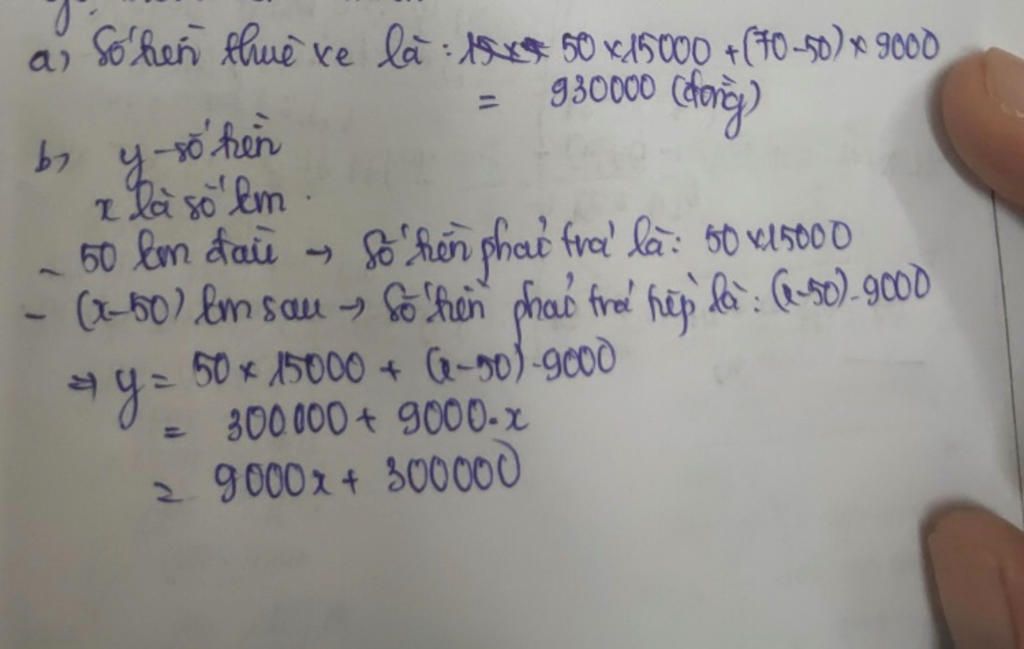 a) Số tiền thuê xe là : 50 x 15000 + (70-50) x 9000
= 930000 (đồng)
b) y - số tiền
x là số km.
- 50 km đầu → Số tiền phải trả là: 50 x 15000
- (x-50) km sau → Số tiền phải trả tiếp là: (x-50).9000
⇒ y = 50 x 15000 + (x-50).9000
= 300000 + 9000.x
= 9000x + 300000